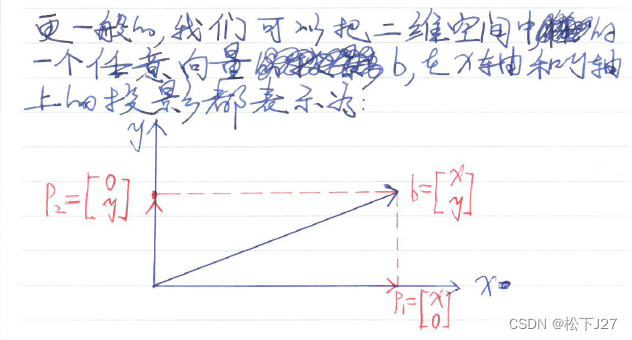 更一般的,我们可以把二维空间中的
一个任意向量b,在x轴和y轴
上的投影都表示为:
y
P₂=[0 y]
b=[x y]
x
P₁=[x 0]
CSDN @松下J27